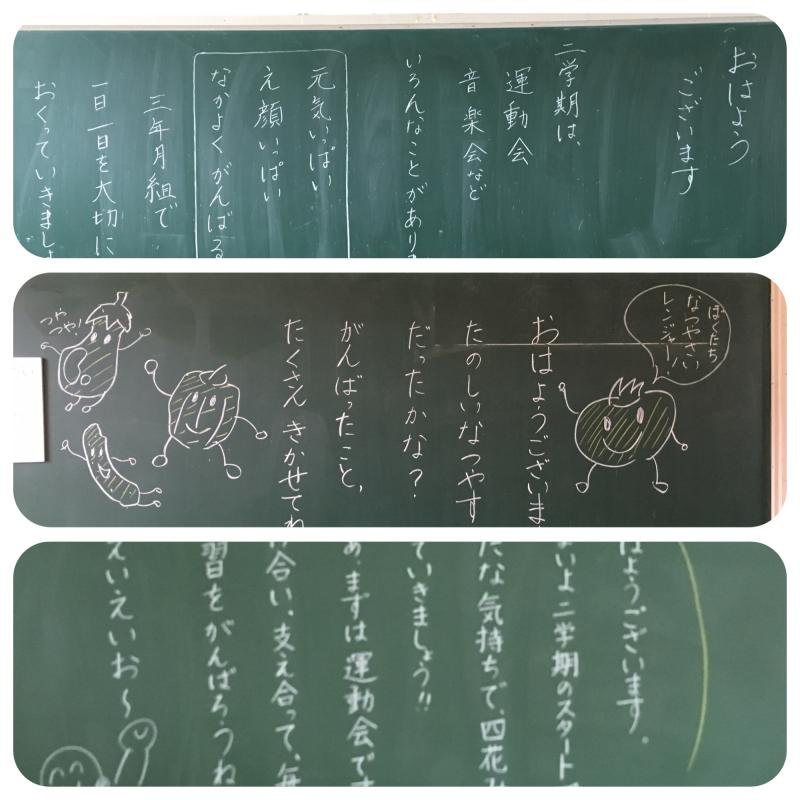 おはよう
ございます
二学期は、
運動会
音楽会など
いろんなことがあり
元気いっぱい
え顔いっぱい
なかよくがんばる
三年月組で
一日一日を大切に
おくっていきましょ
ぼくたち
なつやさい
レンジャー!
おはようございま
たのしいなつやす
だったかな?
がんばったこと、
たくさんきかせてね
つや
つや!
はようございます。
よいよ二学期のスタート
たな気持ちで、四花
ていきましょう!!
あ、まずは運動会です
け合い、支え合って、毎
習をがんばろうね
えいえいお〜